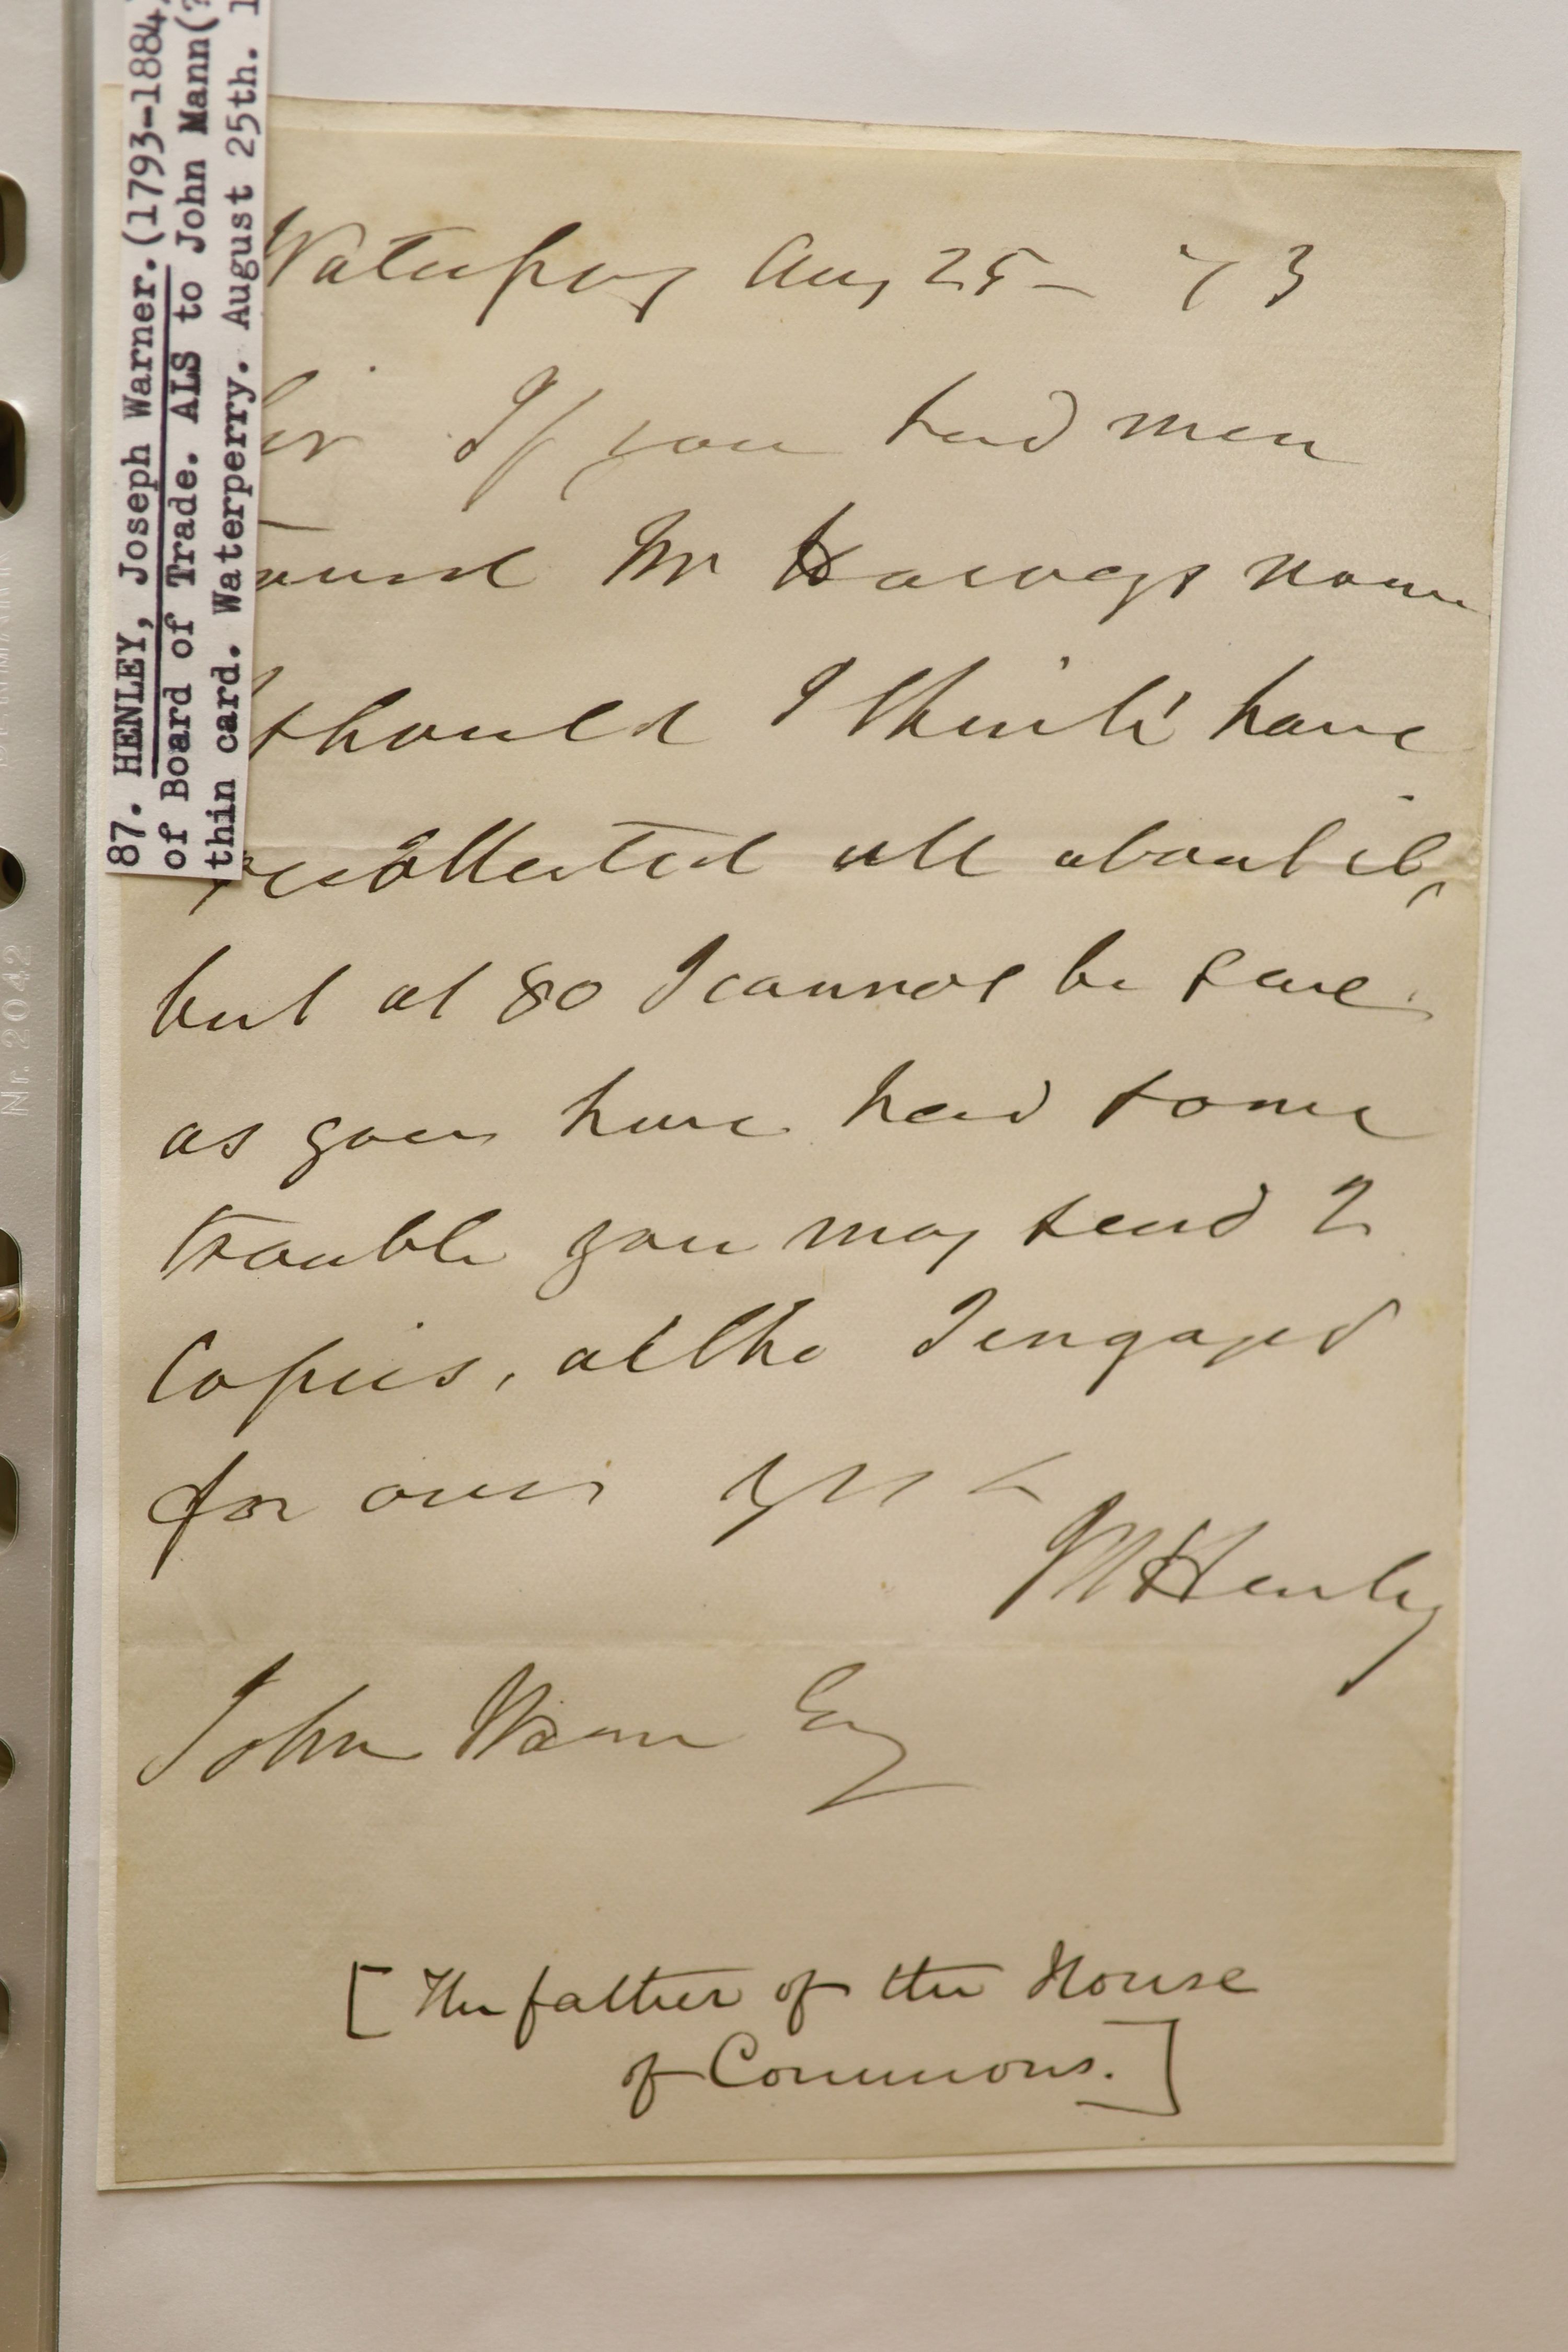 87. HENLEY, Joseph Warner. (1793-1884)
of Board of Trade. ALS to John Mann(?
thin card. Waterperry. August 25th. 1
Nr. 2042
Waterperry Aug 25 - 73
Sir If you had men
tioned Mr name
should I think have
recollected all about it,
but at 80 I cannot be sure
as you have had some
trouble you may send 2
Copies, altho I engaged
for one yrs &
JWHenley
John Mann Esq
[ The father of the House
of Commons. ]